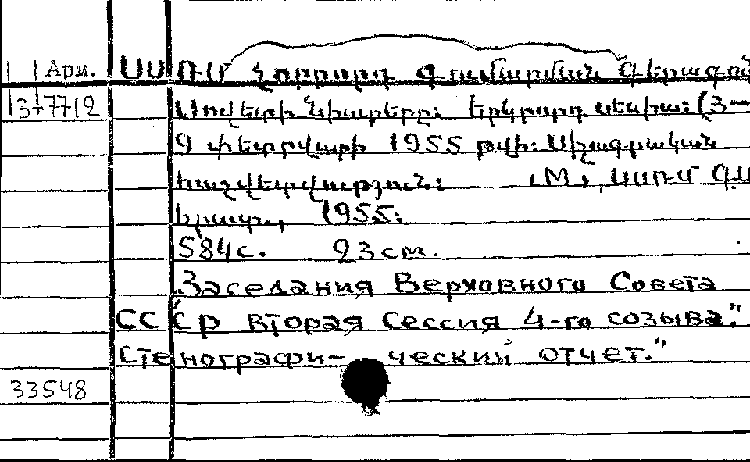 Арм. ՍՍՌՄ չորրորդ գումարման Գերագույն
377712 Սովետի նիստերը: Երկրորդ սեսիա: (3—
9 փետրվարի 1955 թվի: Սղագրական
հաշվետվություն: Մ., ՍՍՌՄ ԳՍ
հրատ., 1955:
584с. 23см.
Заседания Верховного Совета
СССР вторая сессия 4-го созыва."
Стенографи- ческий отчет."
33548